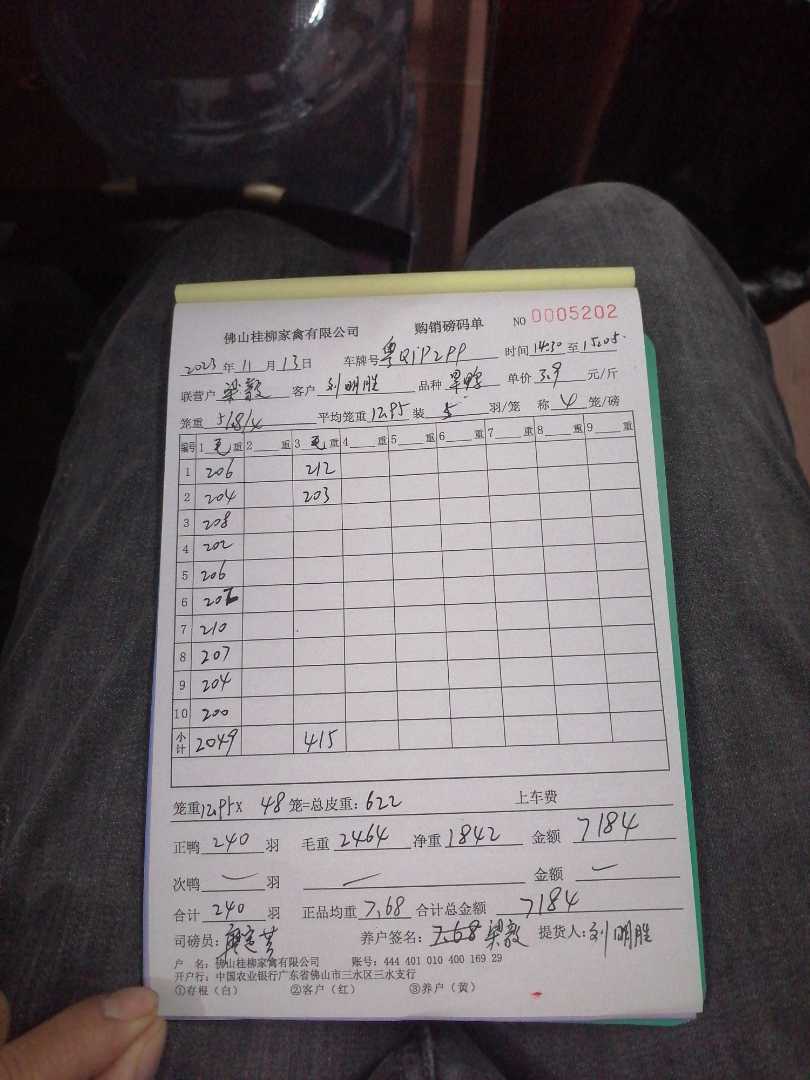 佛山桂柳家禽有限公司 购销磅码单 NO 0005202
2023年11月13日 车牌号 粤Q1P2PP 时间 14:30 至 15:05
联营户 梁敦 客户 刘明胜 品种 单价 3.9 元/斤
笼重 51.8/4 平均笼重 12.95 装 5 羽/笼 称 4 笼/磅
编号 1 毛 重 2 重 3 毛 重 4 重 5 重 6 重 7 重 8 重 9 重
1 206 212
2 204 203
3 208
4 202
5 206
6 202
7 210
8 207
9 204
10 200
小计 2049 415
笼重 12.95 x 48 笼=总皮重: 622 上车费
正鸭 240 羽 毛重 2464 净重 1842 金额 7184
次鸭 羽 金额
合计 240 羽 正品均重 7.68 合计总金额 7184
司磅员: 养户签名: 7.68 梁敦 提货人: 刘明胜
户 名: 佛山桂柳家禽有限公司 账号: 444 401 010 400 169 29
开户行: 中国农业银行广东省佛山市三水区三水支行
①存根(白) ②客户(红) ③养户(黄)